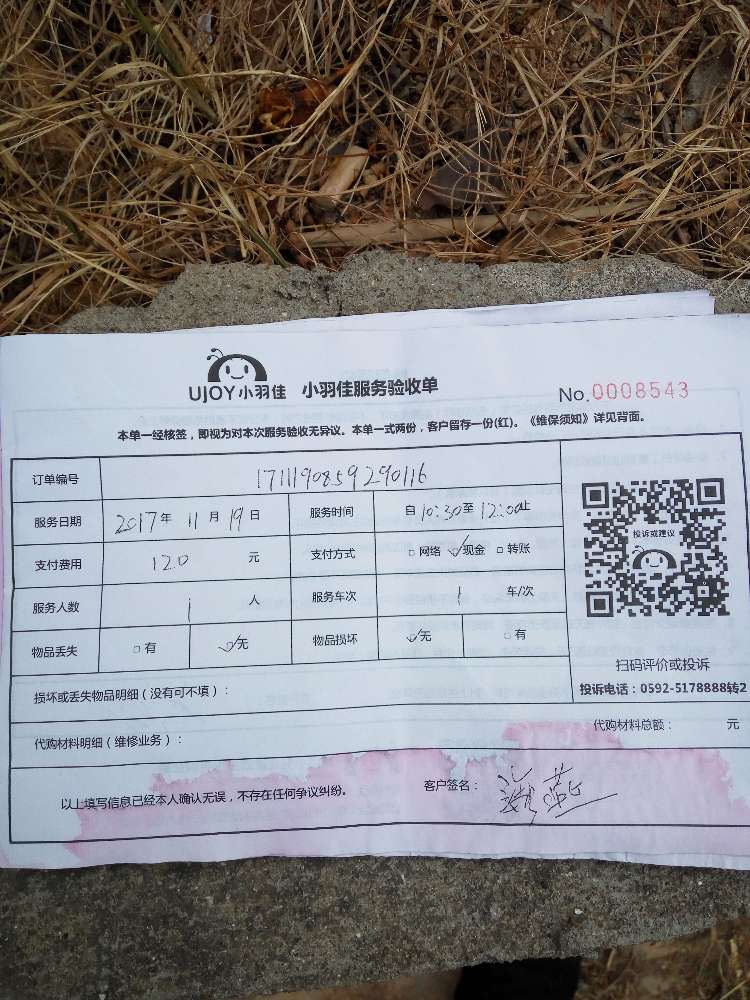 UJOY小羽佳 小羽佳服务验收单
No.0008543
本单一经核签，即视为对本次服务验收无异议。本单一式两份，客户留存一份(红)。《维保须知》详见背面。
订单编号 1711190859290116
服务日期 2017年 11月 19日 服务时间 自10:30至12:00止
支付费用 120 元 支付方式 □网络 ☑现金 □转账
服务人数 1 人 服务车次 1 车/次
物品丢失 □有 ☑无 物品损坏 ☑无 □有
投诉或建议
扫码评价或投诉
投诉电话：0592-5178888转2
损坏或丢失物品明细（没有可不填）：
代购材料明细（维修业务）： 代购材料总额： 元
以上填写信息已经本人确认无误，不存在任何争议纠纷。 客户签名：